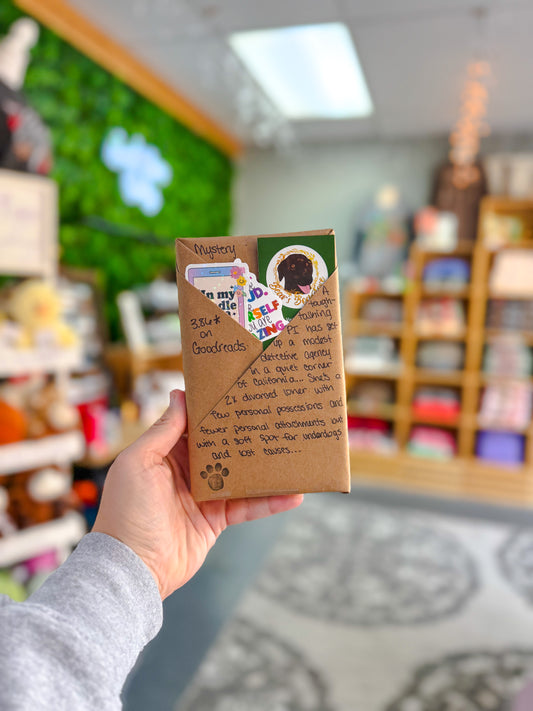 Mystery
in my
OUD.
MYSELF
you are
ZING
3.86* on
Goodreads
A
tough-
talking
PI has set
up a modest
detective agency
in a quiet corner
of California... She's a
2x divorced loner with
few personal possessions and
fewer personal attachments but
with a soft spot for underdogs
and lost causes...